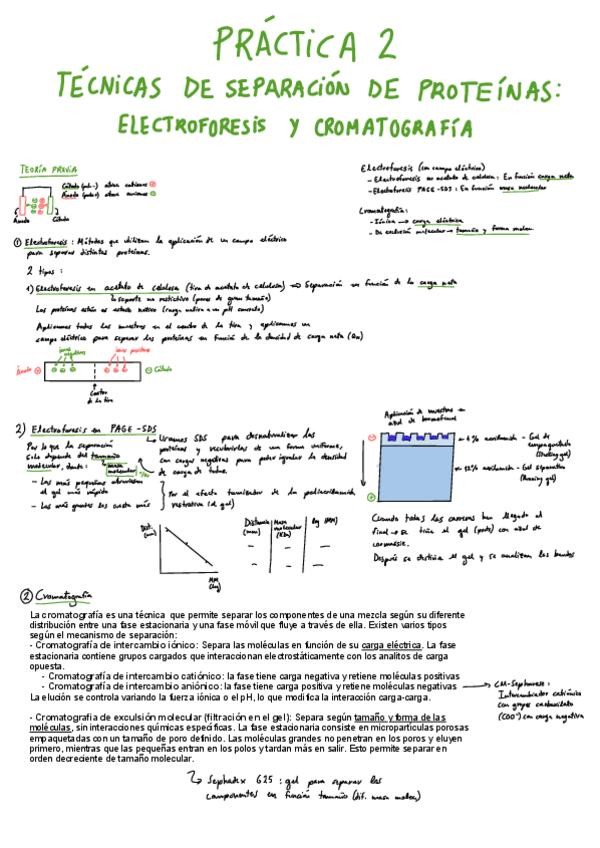 PRÁCTICA 2
TÉCNICAS DE SEPARACIÓN DE PROTEÍNAS:
ELECTROFORESIS Y CROMATOGRAFÍA
TEORÍA PREVIA
Cátodo (polo -) atrae cationes +
Ánodo (polo +) atrae aniones -
Ánodo
Cátodo
Electroforesis (con campo eléctrico)
- Electroforesis en acetato de celulosa: En función carga neta
- Electroforesis PAGE-SDS: En función masa molecular
Cromatografía:
- Iónica → carga eléctrica
- De exclusión molecular → tamaño y forma molec
① Electroforesis: Métodos que utilizan la aplicación de un campo eléctrico
para separar distintas proteínas.
2 tipos:
1) Electroforesis en acetato de celulosa (tira de acetato de celulosa) → Separación en función de la carga neta
↳ soporte no restrictivo (poros de gran tamaño)
Las proteínas están en estado nativo (carga nativa a un pH concreto)
Aplicamos todas las muestras en el centro de la tira y aplicamos un
campo eléctrico para separar las proteínas en función de la densidad de carga neta (Qn)
iones negativos
iones positivos
Ánodo +
- Cátodo
Centro
de la tira
2) Electroforesis en PAGE-SDS
↳ Usamos SDS para desnaturalizar las
proteínas y recubrirlas de un forma uniforme,
con cargas negativas para poder igualar la densidad
de carga de todas.
Por lo que la separación
solo depende del tamaño
molecular, donde:
masa
molecular
- Las más pequeñas atraviesan
el gel más rápido
- Las más grandes les cuesta más
Por el efecto tamizador de la poliacrilamida
restrictiva (el gel)
Aplicación de muestras en
azul de bromofenol
4% acrilamida - Gel de
empaquetado
(Stacking gel)
12% acrilamida - Gel separativo
(Running gel)
Dist.
(mm)
MM
(log)
Distancia
(mm)
Masa
molecular
(KDa)
log (MM)
Cuando todas las carreras han llegado al
final → se tiñe el gel (posts) con azul de
coomassie.
Después se destiñe el gel y se analizan las bandas
② Cromatografía
La cromatografía es una técnica que permite separar los componentes de una mezcla según su diferente
distribución entre una fase estacionaria y una fase móvil que fluye a través de ella. Existen varios tipos
según el mecanismo de separación:
- Cromatografía de intercambio iónico: Separa las moléculas en función de su carga eléctrica. La fase
estacionaria contiene grupos cargados que interaccionan electrostáticamente con los analitos de carga
opuesta.
- Cromatografía de intercambio catiónico: la fase tiene carga negativa y retiene moléculas positivas
- Cromatografía de intercambio aniónico: la fase tiene carga positiva y retiene moléculas negativas
La elución se controla variando la fuerza iónica o el pH, lo que modifica la interacción carga-carga.
→ CM-Sepharose:
Intercambiador catiónico
con grupos carboxilato
(COO⁻) con carga negativa
- Cromatografía de exculsión molecular (filtración en el gel): Separa según tamaño y forma de las
moléculas, sin interacciones químicas específicas. La fase estacionaria consiste en micropartículas porosas
empaquetadas con un tamaño de poro definido. Las moléculas grandes no penetran en los poros y eluyen
primero, mientras que las pequeñas entran en los polos y tardan más en salir. Esto permite separar en
orden decreciente de tamaño molecular.
↳ Sephadex G25: gel para separar los
componentes en función tamaño (dif. masa molec)